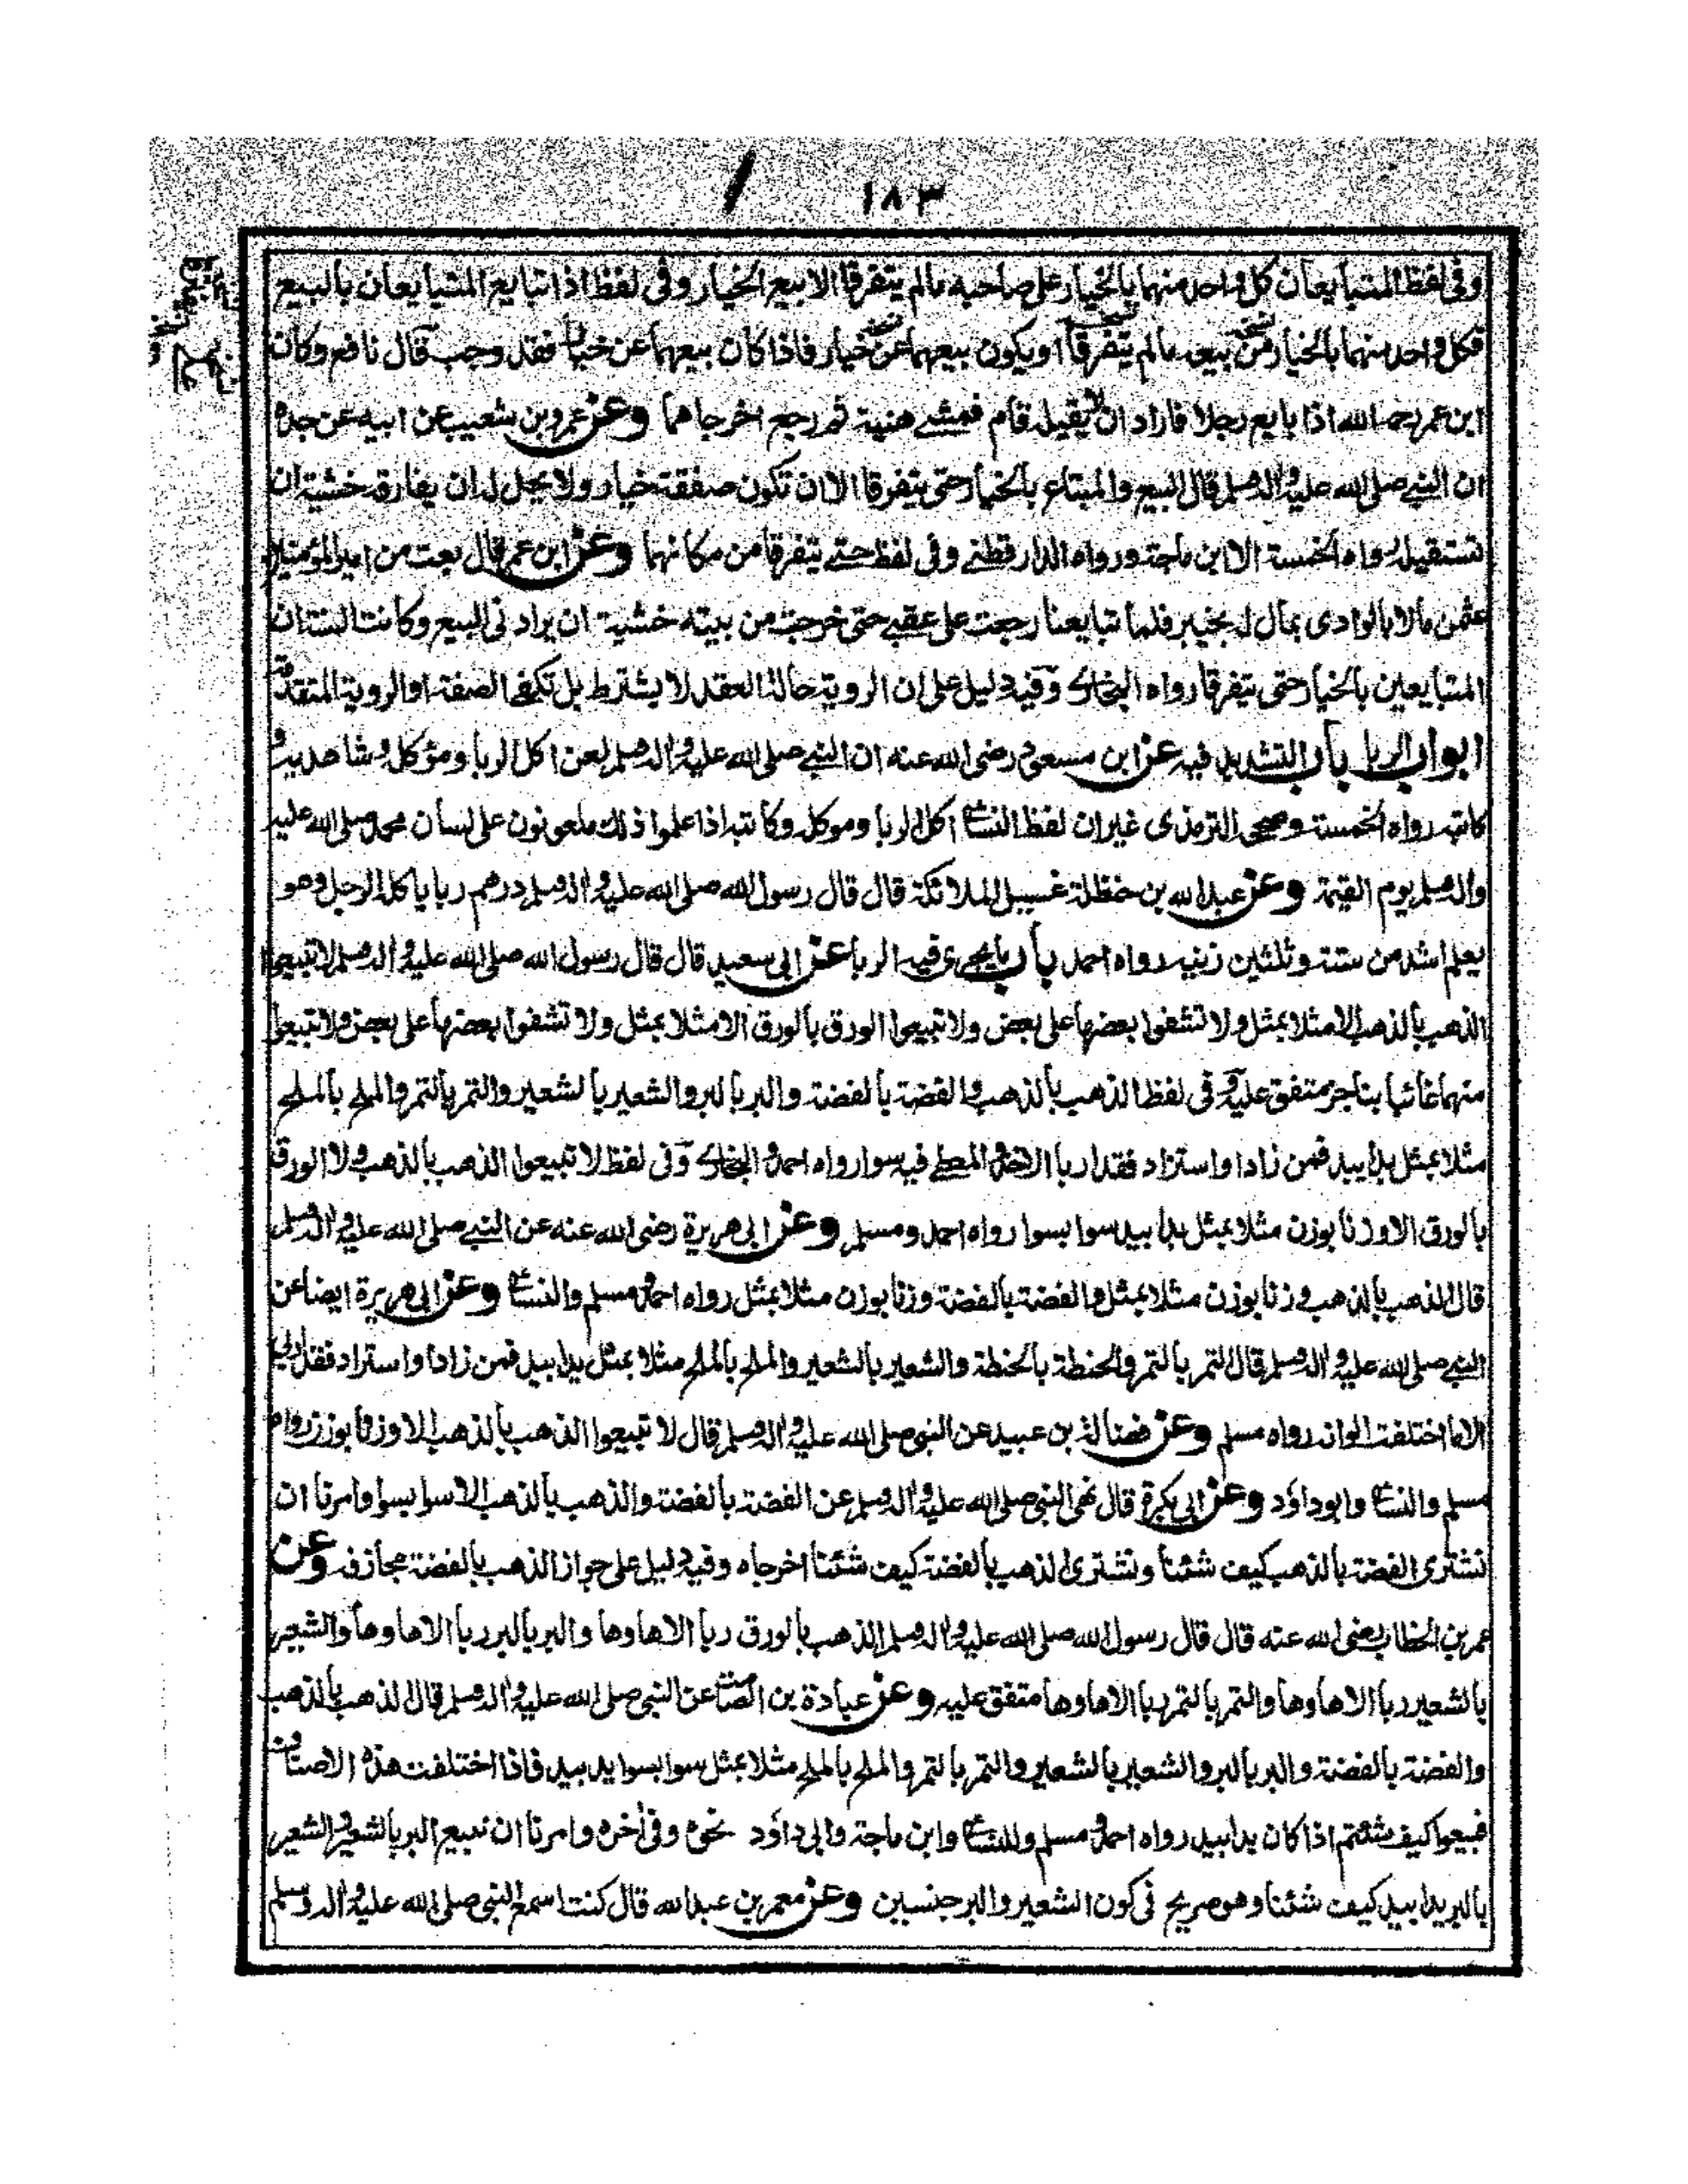 ١٨٣
وفى لفظ المتبايعان كل واحد منهما بالخيار على صاحبه مالم يتفرقا الا بيع الخيار وفى لفظ اذا تبايع المتبايعان بالبيع
فكل واحد منهما بالخيار من بيعه مالم يتفرقا او يكون بيعهما عن خيار فاذا كان بيعهما عن خيار فقد وجب قال نافع وكان
ابن عمر رحمه الله اذا بايع رجلا فاراد ان لا يقيله قام فمشے هنية ثم رجع اخرجاهما وعن عمرو بن شعيب عن ابيه عن جده
ان النبے صلى الله عليه واله وسلم قال البيع والمبتاع بالخيار حتى يتفرقا الا ان تكون صفقة خيار ولا يحل له ان يفارقه خشية ان
تستقيله رواه الخمسة الا ابن ماجة ورواه الدارقطنے وفى لفظ حتے يتفرقا من مكانهما وعن ابن عمر قال بعت من امير المؤمنين
عثمن مالا بالوادى بمال له بخيبر فلما تبايعنا رجعت على عقبے حتى خرجت من بيته خشية ان يرادنى البيع وكانت السنة ان
المتبايعين بالخيار حتى يتفرقا رواه البخارى وفيه دليل على ان الروية حالة العقد لا يشترط بل تكفى الصفة او الروية المتقدمة
ابواب الربا باب التشديد فيه عن ابن مسعود رضى الله عنه ان النبے صلى الله عليه واله وسلم لعن اكل الربا ومؤكله وشاهديه و
كاتبه رواه الخمسة وصححه الترمذى غير ان لفظ النسائى اكل الربا وموكله وكاتبه اذا علموا ذلك ملعونون على لسان محمد صلى الله عليه
واله وسلم يوم القيمة وعن عبد الله بن حنظلة غسيل الملائكة قال قال رسول الله صلى الله عليه واله وسلم درهم ربا ياكله الرجل وهو
يعلم اشد من ستة وثلثين زنية رواه احمد باب ما يجرى فيه الربا عن ابى سعيد قال قال رسول الله صلى الله عليه واله وسلم لا تبيعوا
الذهب بالذهب الا مثلا بمثل ولا تشفوا بعضها على بعض ولا تبيعوا الورق بالورق الا مثلا بمثل ولا تشفوا بعضها على بعض ولا تبيعوا
منهما غائبا بناجز متفق عليه وفى لفظ الذهب بالذهب والفضة بالفضة والبر بالبر والشعير بالشعير والتمر بالتمر والملح بالملح
مثلا بمثل يدا بيد فمن زاد او استزاد فقد اربا الاخذ والمعطے فيه سوا رواه احمد والبخارى وفى لفظ لا تبيعوا الذهب بالذهب ولا الورق
بالورق الا وزنا بوزن مثلا بمثل يدا بيد سوا بسوا رواه احمد ومسلم وعن ابى هريرة رضى الله عنه عن النبے صلى الله عليه واله وسلم
قال الذهب بالذهب وزنا بوزن مثلا بمثل والفضة بالفضة وزنا بوزن مثلا بمثل رواه احمد ومسلم والنسائى وعن ابى هريرة ايضا عن
النبے صلى الله عليه واله وسلم قال التمر بالتمر والحنطة بالحنطة والشعير بالشعير والملح بالملح مثلا بمثل يدا بيد فمن زاد او استزاد فقد اربى
الا ما اختلفت الوانه رواه مسلم وعن فضالة بن عبيد عن النبى صلى الله عليه واله وسلم قال لا تبيعوا الذهب بالذهب الا وزنا بوزن رواه
مسلم والنسائى وابو داؤد وعن ابى بكرة قال نهى النبى صلى الله عليه واله وسلم عن الفضة بالفضة والذهب بالذهب الا سوا بسوا وامرنا ان
نشترى الفضة بالذهب كيف شئنا ونشترى الذهب بالفضة كيف شئنا اخرجاه وفيه دليل على جواز الذهب بالفضة مجازفة وعن
عمر بن الخطاب رضى الله عنه قال قال رسول الله صلى الله عليه واله وسلم الذهب بالورق ربا الا ها وها والبر بالبر ربا الا ها وها والشعير
بالشعير ربا الا ها وها والتمر بالتمر ربا الا ها وها متفق عليه وعن عبادة بن الصامت عن النبى صلى الله عليه واله وسلم قال الذهب بالذهب
والفضة بالفضة والبر بالبر والشعير بالشعير والتمر بالتمر والملح بالملح مثلا بمثل سوا بسوا يدا بيد فاذا اختلفت هذه الاصناف
فبيعوا كيف شئتم اذا كان يدا بيد رواه احمد ومسلم وللنسائى وابن ماجة وابى داؤد نحوه وفى أخره وامرنا ان نبيع البر بالشعير والشعير
بالبر يدا بيد كيف شئنا وهو صريح فى كون الشعير والبر جنسين وعن معمر بن عبد الله قال كنت اسمع النبى صلى الله عليه واله وسلم